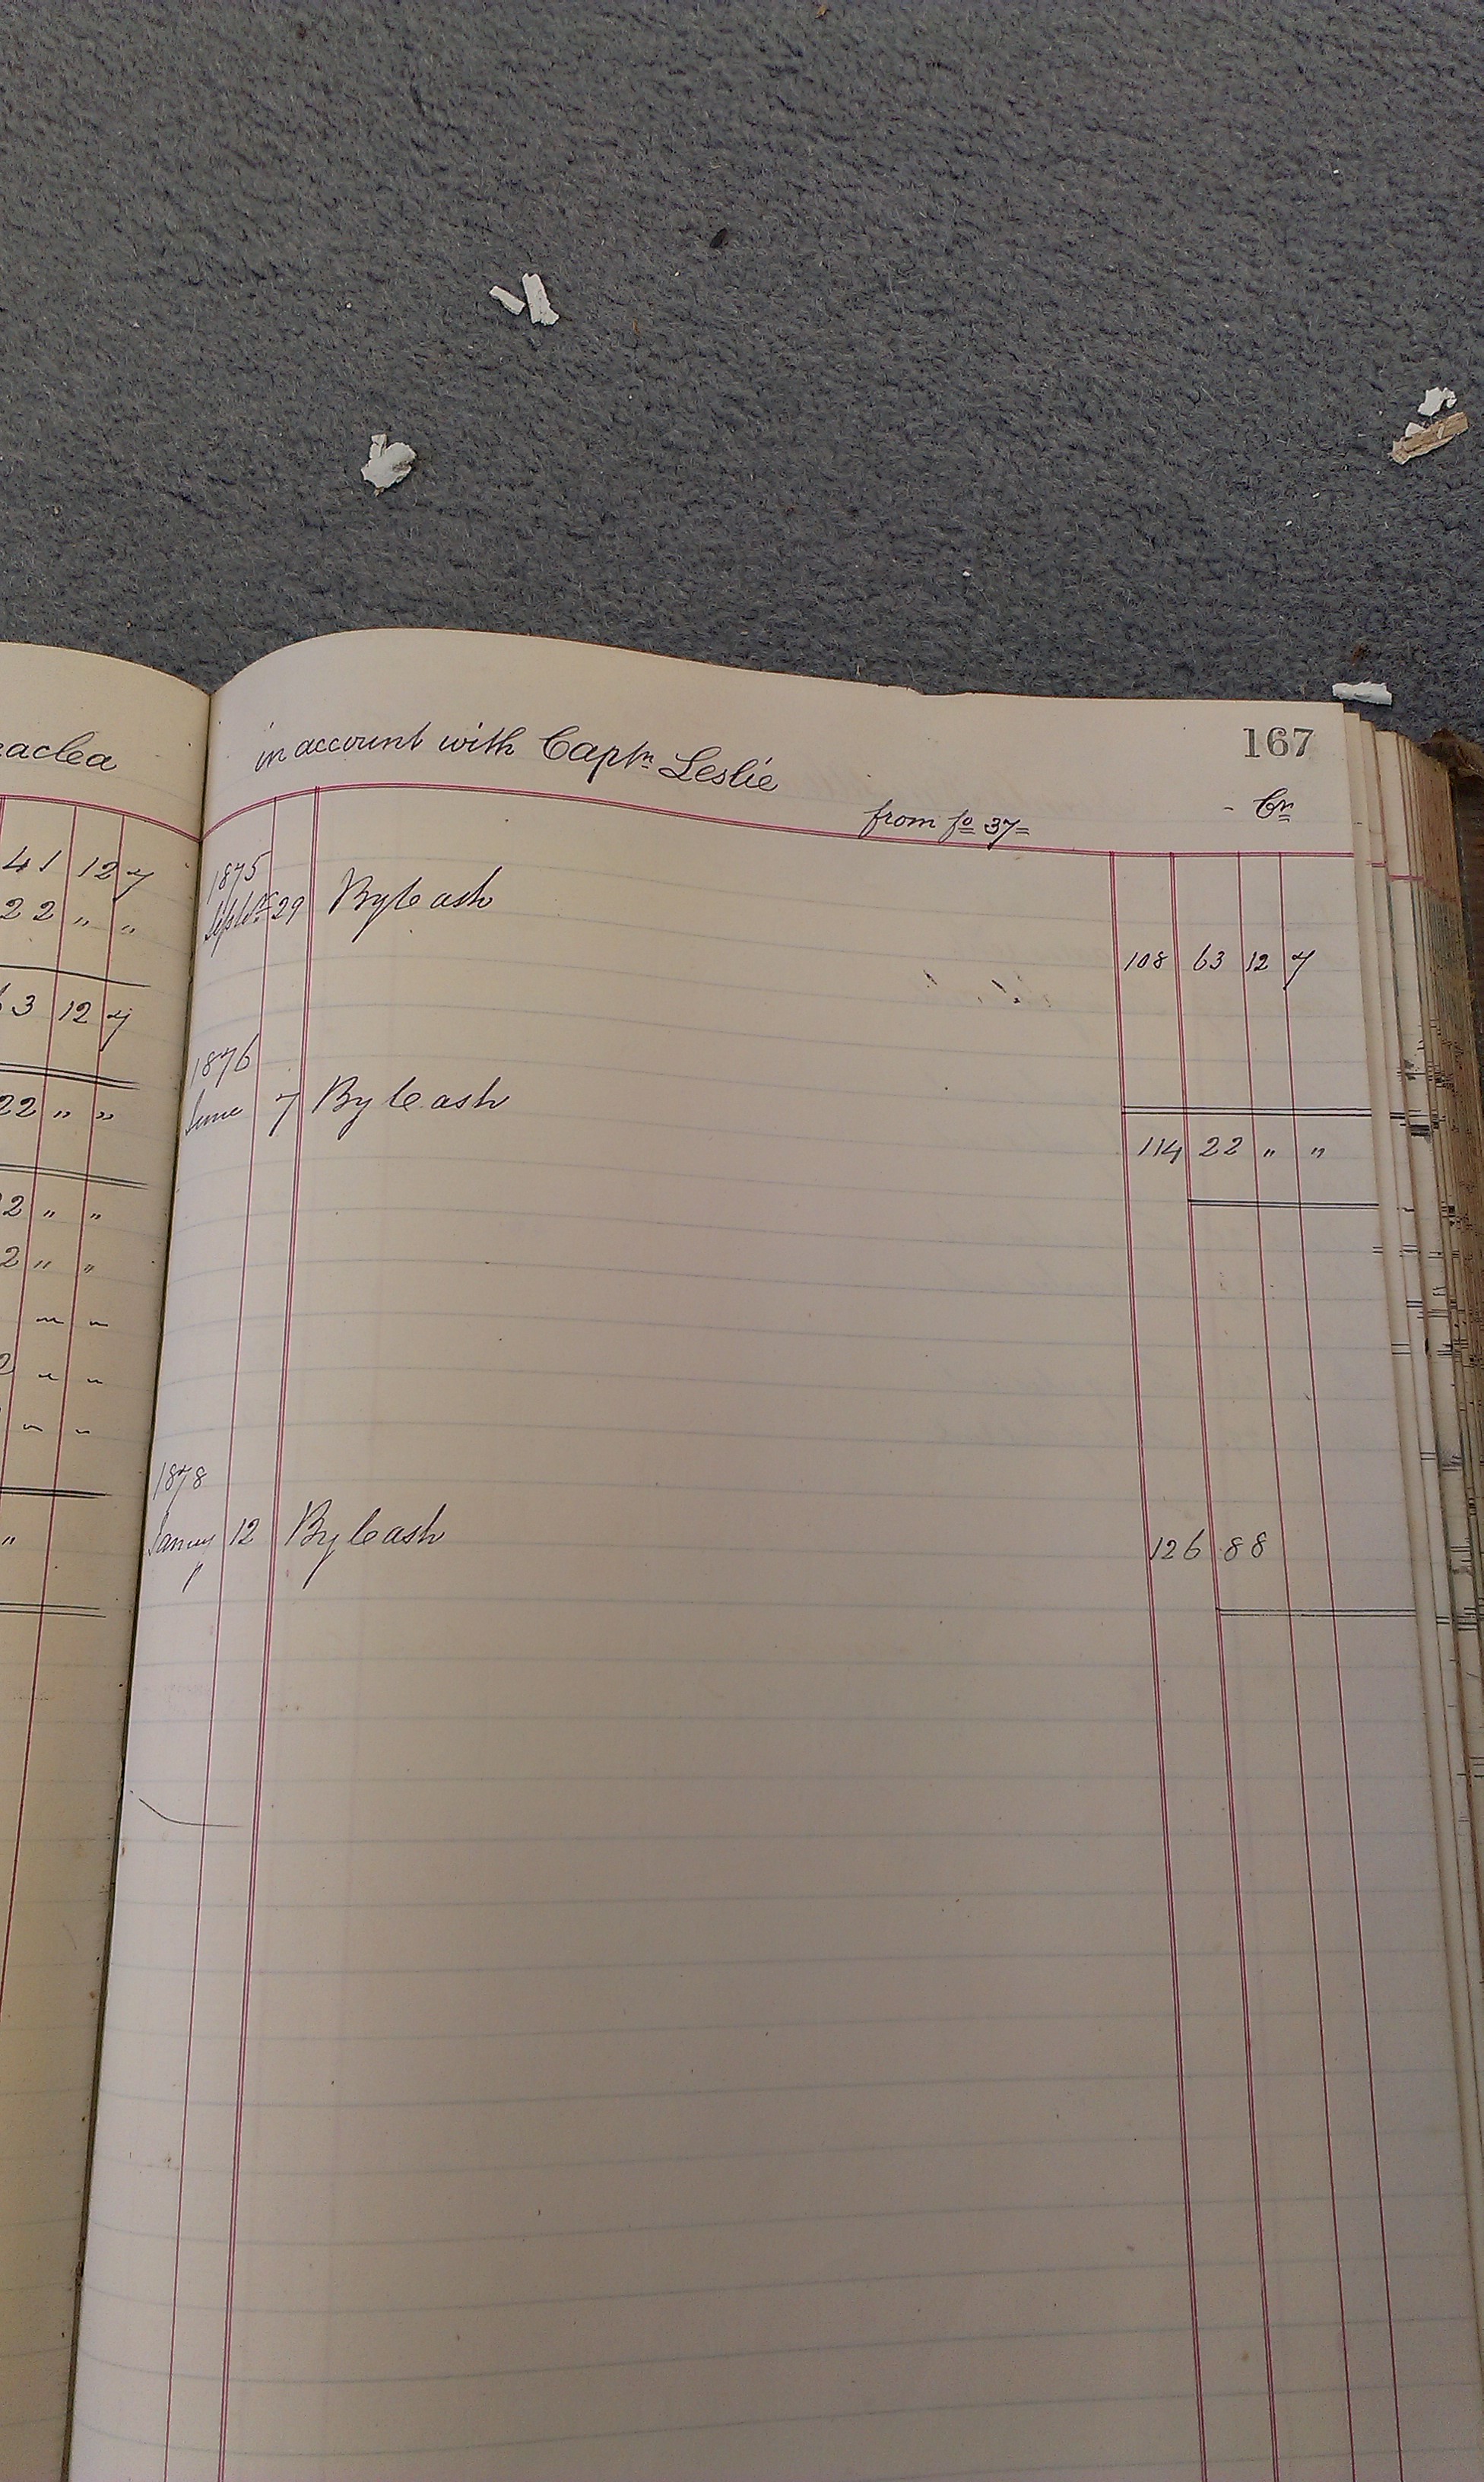 aclea
41 12 7
22 " "
63 12 7
22 " "
2 " "
2 " "
" "
2 " "
" "
"
167
in account with Captn Leslie
from fo 37 Cr
1875
Septr 29 By Cash
108 63 12 7
1876
June 7 By Cash
114 22 " "
1878
Janury 12 By Cash 126 88
"